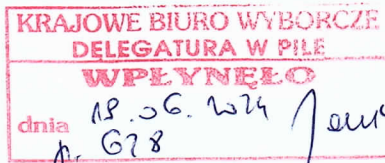 KRAJOWE BIURO WYBORCZE
DELEGATURA W PILE
WPŁYNĘŁO
dnia 18.06.2024
628